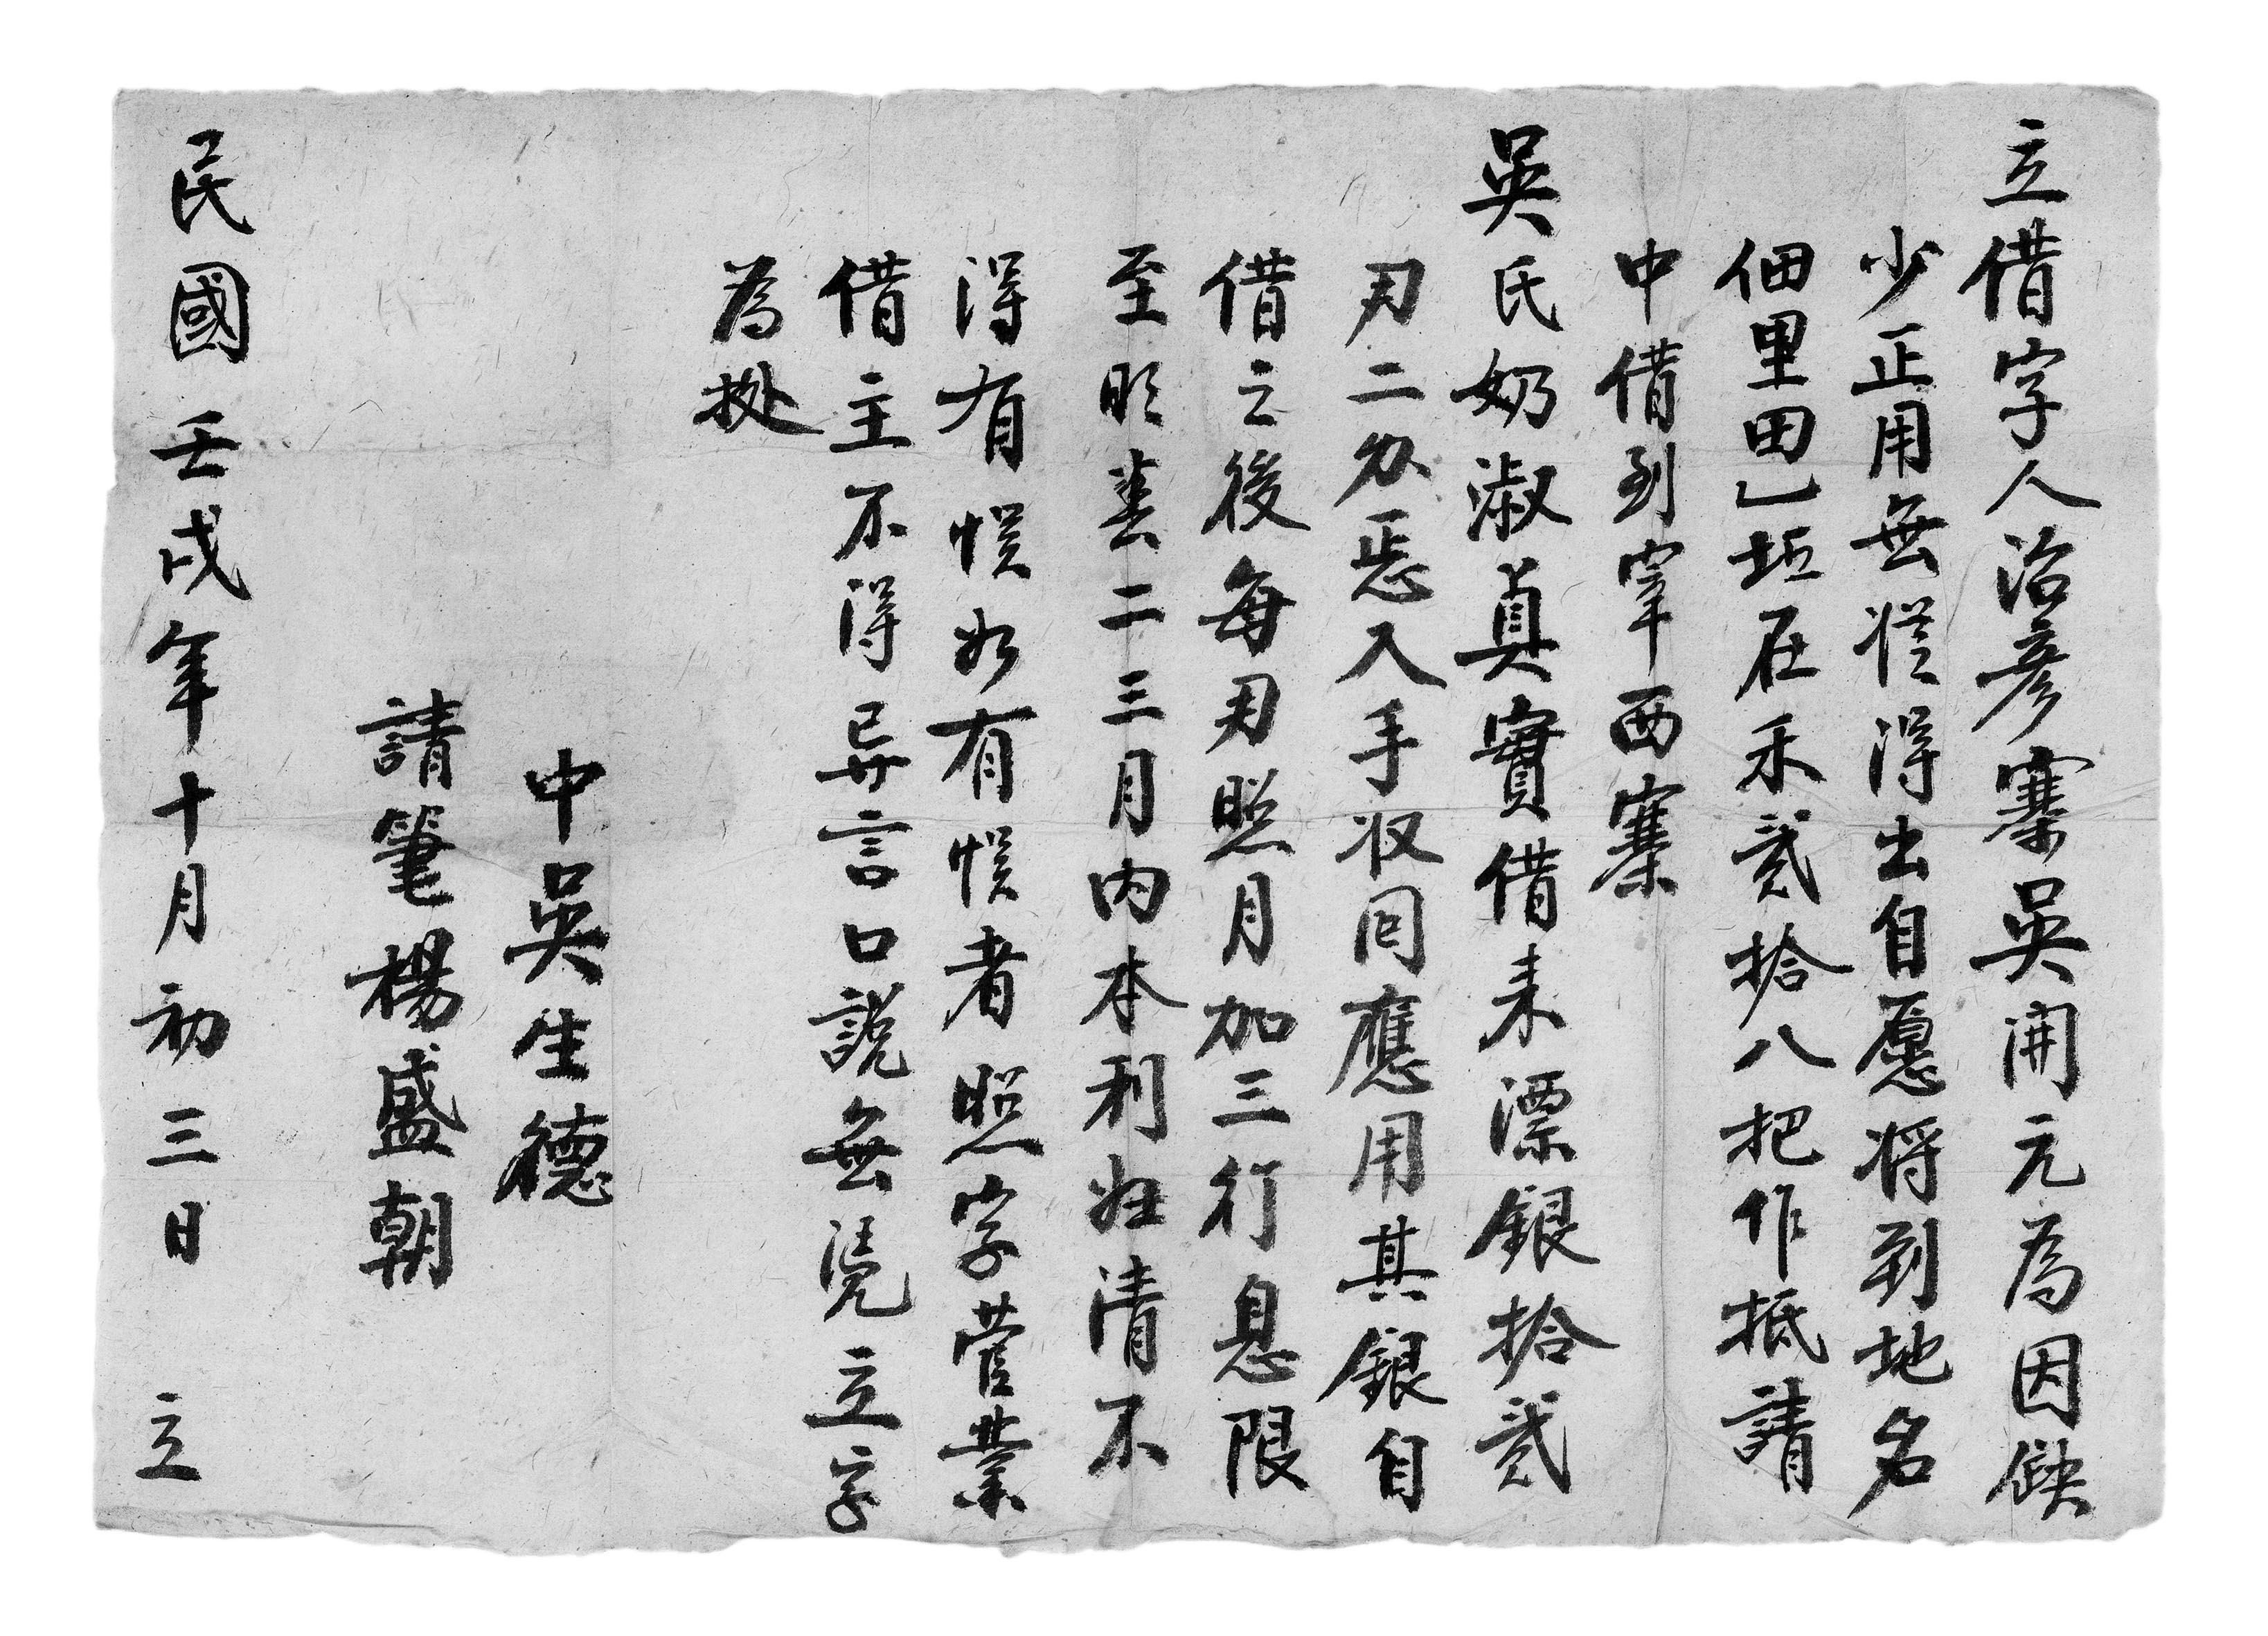 立借字人治彦寨吳開元為因缺
少正用無從得出自愿将到地名
佃里田乚坵在禾貳拾八把作抵請
中借到宰西寨
吳氏奶淑真實借来漂銀拾貳
刃二分忢入手收回應用其銀自
借之後每刃照月加三行息限
至明春二三月内本利归清不
得有悞如有悞者照字管業
借主不得异言口説無凴立字
為拠
中吳生德
請筆楊盛朝
民國壬戌年十月初三日 立